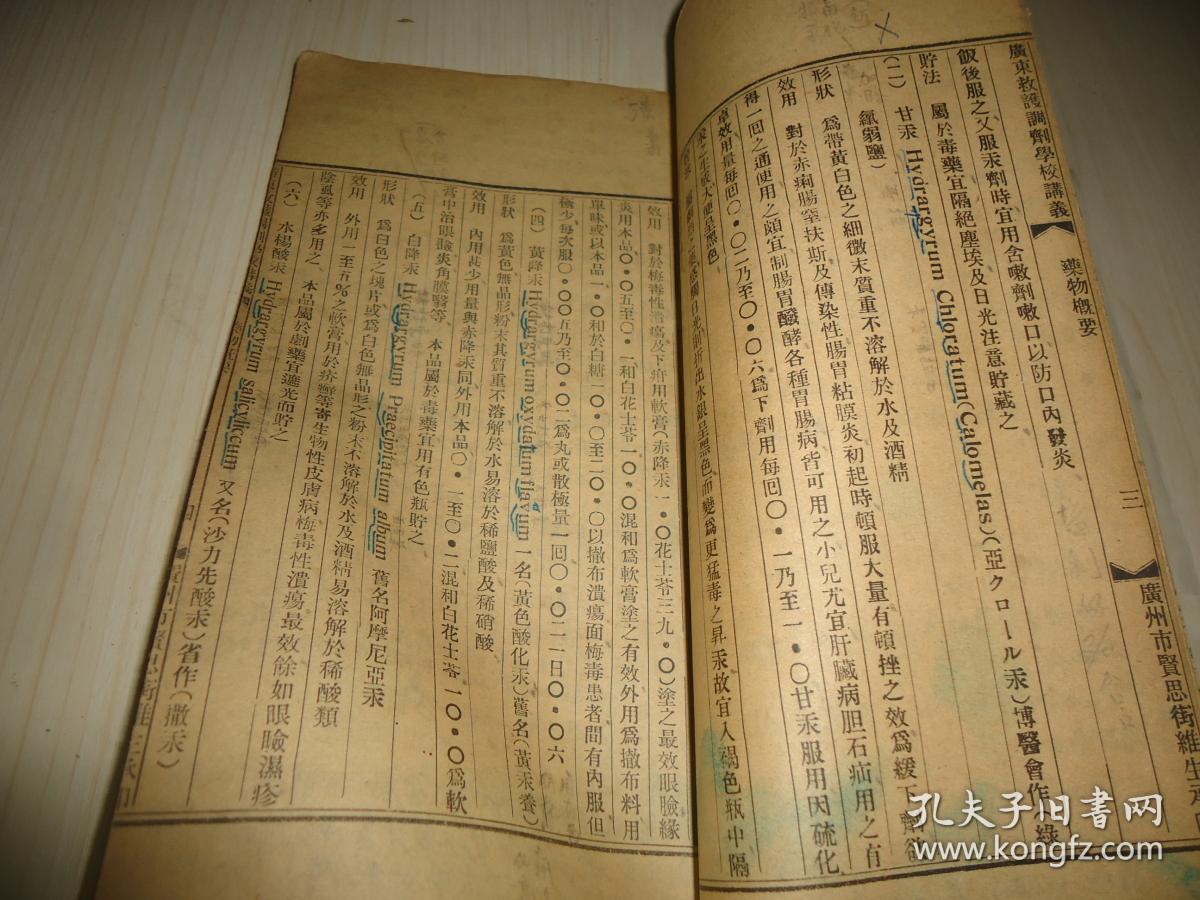 廣東救護調劑學校講義 藥物概要 三 廣州市賢思街維生承印
飯後服之又服汞劑時宜用含嗽劑嗽口以防口內發炎
貯法 屬於毒藥宜隔絕塵埃及日光注意貯藏之
(二) 甘汞 Hydrargyrum Chloratum (Calomelas) (亞クロール汞) 博醫會作 綠
氯弱鹽)
形狀 爲帶黃白色之細微末質重不溶解於水及酒精
效用 對於赤痢腸窒扶斯及傳染性腸胃粘膜炎初起時頓服大量有頓挫之效爲緩下劑欲
得一回之通便用之頗宜制腸胃醱酵各種胃腸病皆可用之小兒尤宜肝臟病胆石疝用之有
卓效用量每回〇·〇二乃至〇·〇六爲下劑用每回〇·一乃至一·〇甘汞服用因硫化
汞之生成大便呈黑色
光則析出水銀呈黑色而變爲更猛毒之昇汞故宜入褐色瓶中隔
效用 對於梅毒性潰瘍及下疳用軟膏(赤降汞一·〇花士苓三九·〇)塗之最效眼瞼緣
炎用本品〇·〇五至〇·一和白花士苓一〇·〇混和爲軟膏塗之有效外用爲撒布料用
單味或以本品一·〇和於白糖一〇·〇至二〇·〇以撒布潰瘍面梅毒患者間有內服但
極少每次服〇·〇〇五乃至〇·〇二爲丸或散極量一回〇·〇二一日〇·〇六
(四) 黃降汞 Hydrargyrum oxydatum flavum 一名(黃色酸化汞)舊名(黃汞養)
形狀 爲黃色無晶形粉末其質重不溶解於水易溶於稀鹽酸及稀硝酸
效用 內用甚少用量與赤降汞同外用本品〇·一至〇·二混和白花士苓一〇·〇爲軟
膏中治眼瞼炎角膜翳等 本品屬於毒藥宜用有色瓶貯之
(五) 白降汞 Hydrargyrum Praecipitatum album 舊名阿摩尼亞汞
形狀 爲白色之塊片或爲白色無晶形之粉末不溶解於水及酒精易溶解於稀酸類
效用 外用一至五%之軟膏用於疥癬等寄生物性皮膚病梅毒性潰瘍最效餘如眼瞼濕疹
陰虱等亦多用之 本品屬於劇藥宜遮光而貯之
(六) 水楊酸汞 Hydrargyrum salicylicum 又名(沙力先酸汞)省作(撒汞)
四
孔夫子旧书网
www.kongfz.com